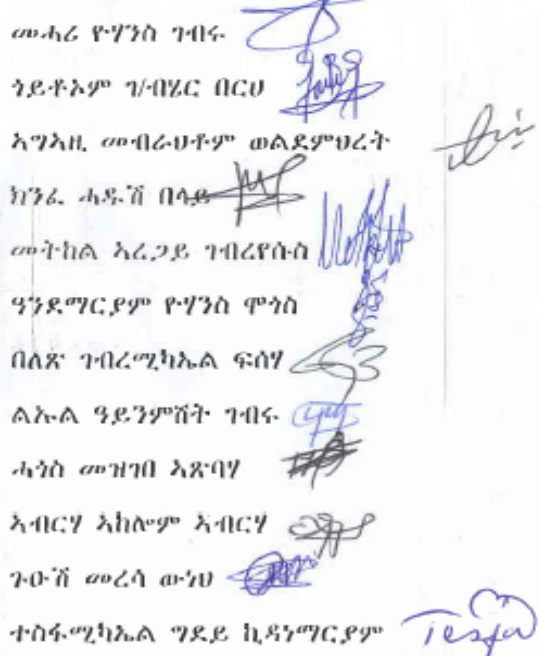 መሓሪ ዮሃንስ ገብሩ
ጎይቶኦም ገ/ብሄር በርሀ
ኣግኣዚ መብራህቶም ወልደምህረት
ክንፈ ሓዱሽ በላይ
መትከል ኣረጋይ ገብረየሱስ
ዓንደማርያም ዮሃንስ ሞጎስ
በለጽ ገብረሚካኤል ፍሰሃ
ልኡል ዓይንምሽት ገብሩ
ሓጎስ መዝገበ ኣጽባሃ
ኣብርሃ ኣክሎም ኣብርሃ
ጉዑሽ መረሳ ውነህ
ተስፋሚካኤል ግደይ ኪዳነማርያም Tesfa